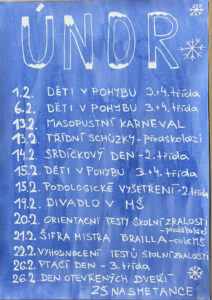 ÚNOR
1.2. DĚTI V POHYBU 3.+4. třída
6.2. DĚTI V POHYBU 3.+4. třída
13.2. MASOPUSTNÍ KARNEVAL
13.2. TŘÍDNÍ SCHŮZKY - předškoláci
14.2. SRDÍČKOVÝ DEN - 2. třída
15.2. DĚTI V POHYBU 3.+4. třída
15.2. PODOLOGICKÉ VYŠETŘENÍ - 2. třída
19.2. DIVADLO V MŠ
20.2. ORIENTAČNÍ TESTY ŠKOLNÍ ZRALOSTI
- předškoláci
21.2. ŠIFRA MISTRA BRAILLA - celá MŠ
22.2. VYHODNOCENÍ TESTŮ ŠKOLNÍ ZRALOSTI
26.2. PTAČÍ DEN - 3. třída
26.2. DEN OTEVŘENÝCH DVEŘÍ
ZŠ NA SMETANCE